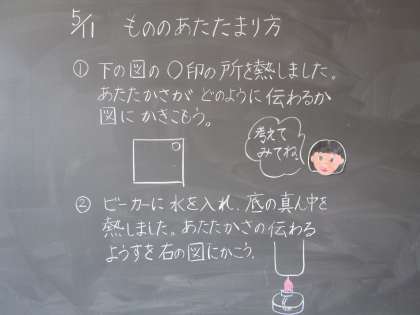 5/11 もののあたたまり方
① 下の図の○印の所を熱しました。
あたたかさが どのように伝わるか
図に かきこもう。
考えて
みてね。
② ビーカーに 水を入れ、底の真ん中を
熱しました。あたたかさの伝わる
ようすを右の図にかこう。